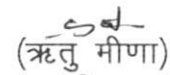 (ऋतु मीणा)